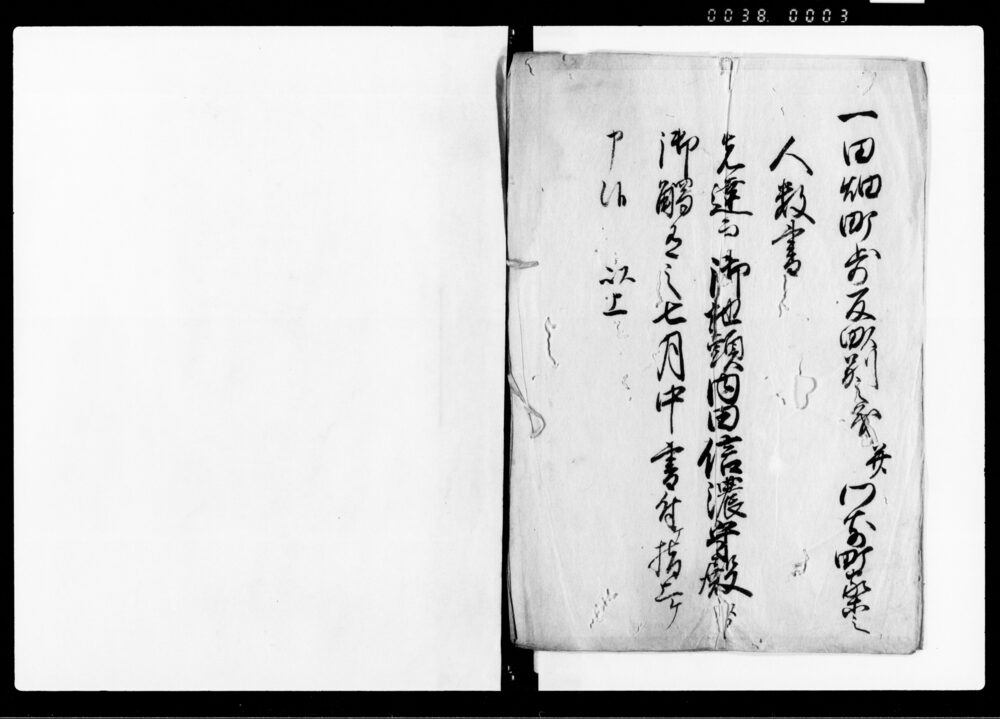 0038 0003
一田畑町歩反畝別之義并門前町家之
人数書
先達而御地頭内田信濃守殿
御触有之七月中書付指上ケ
申候 以上